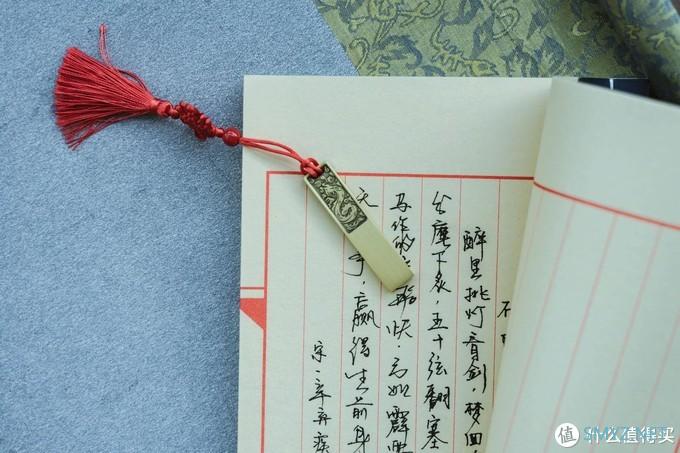 醉里挑灯看剑,梦回
分麾下炙,五十弦翻塞
马作的飞快,弓如霹
天事,赢得生前身
宋·辛弃疾
值 什么值得买